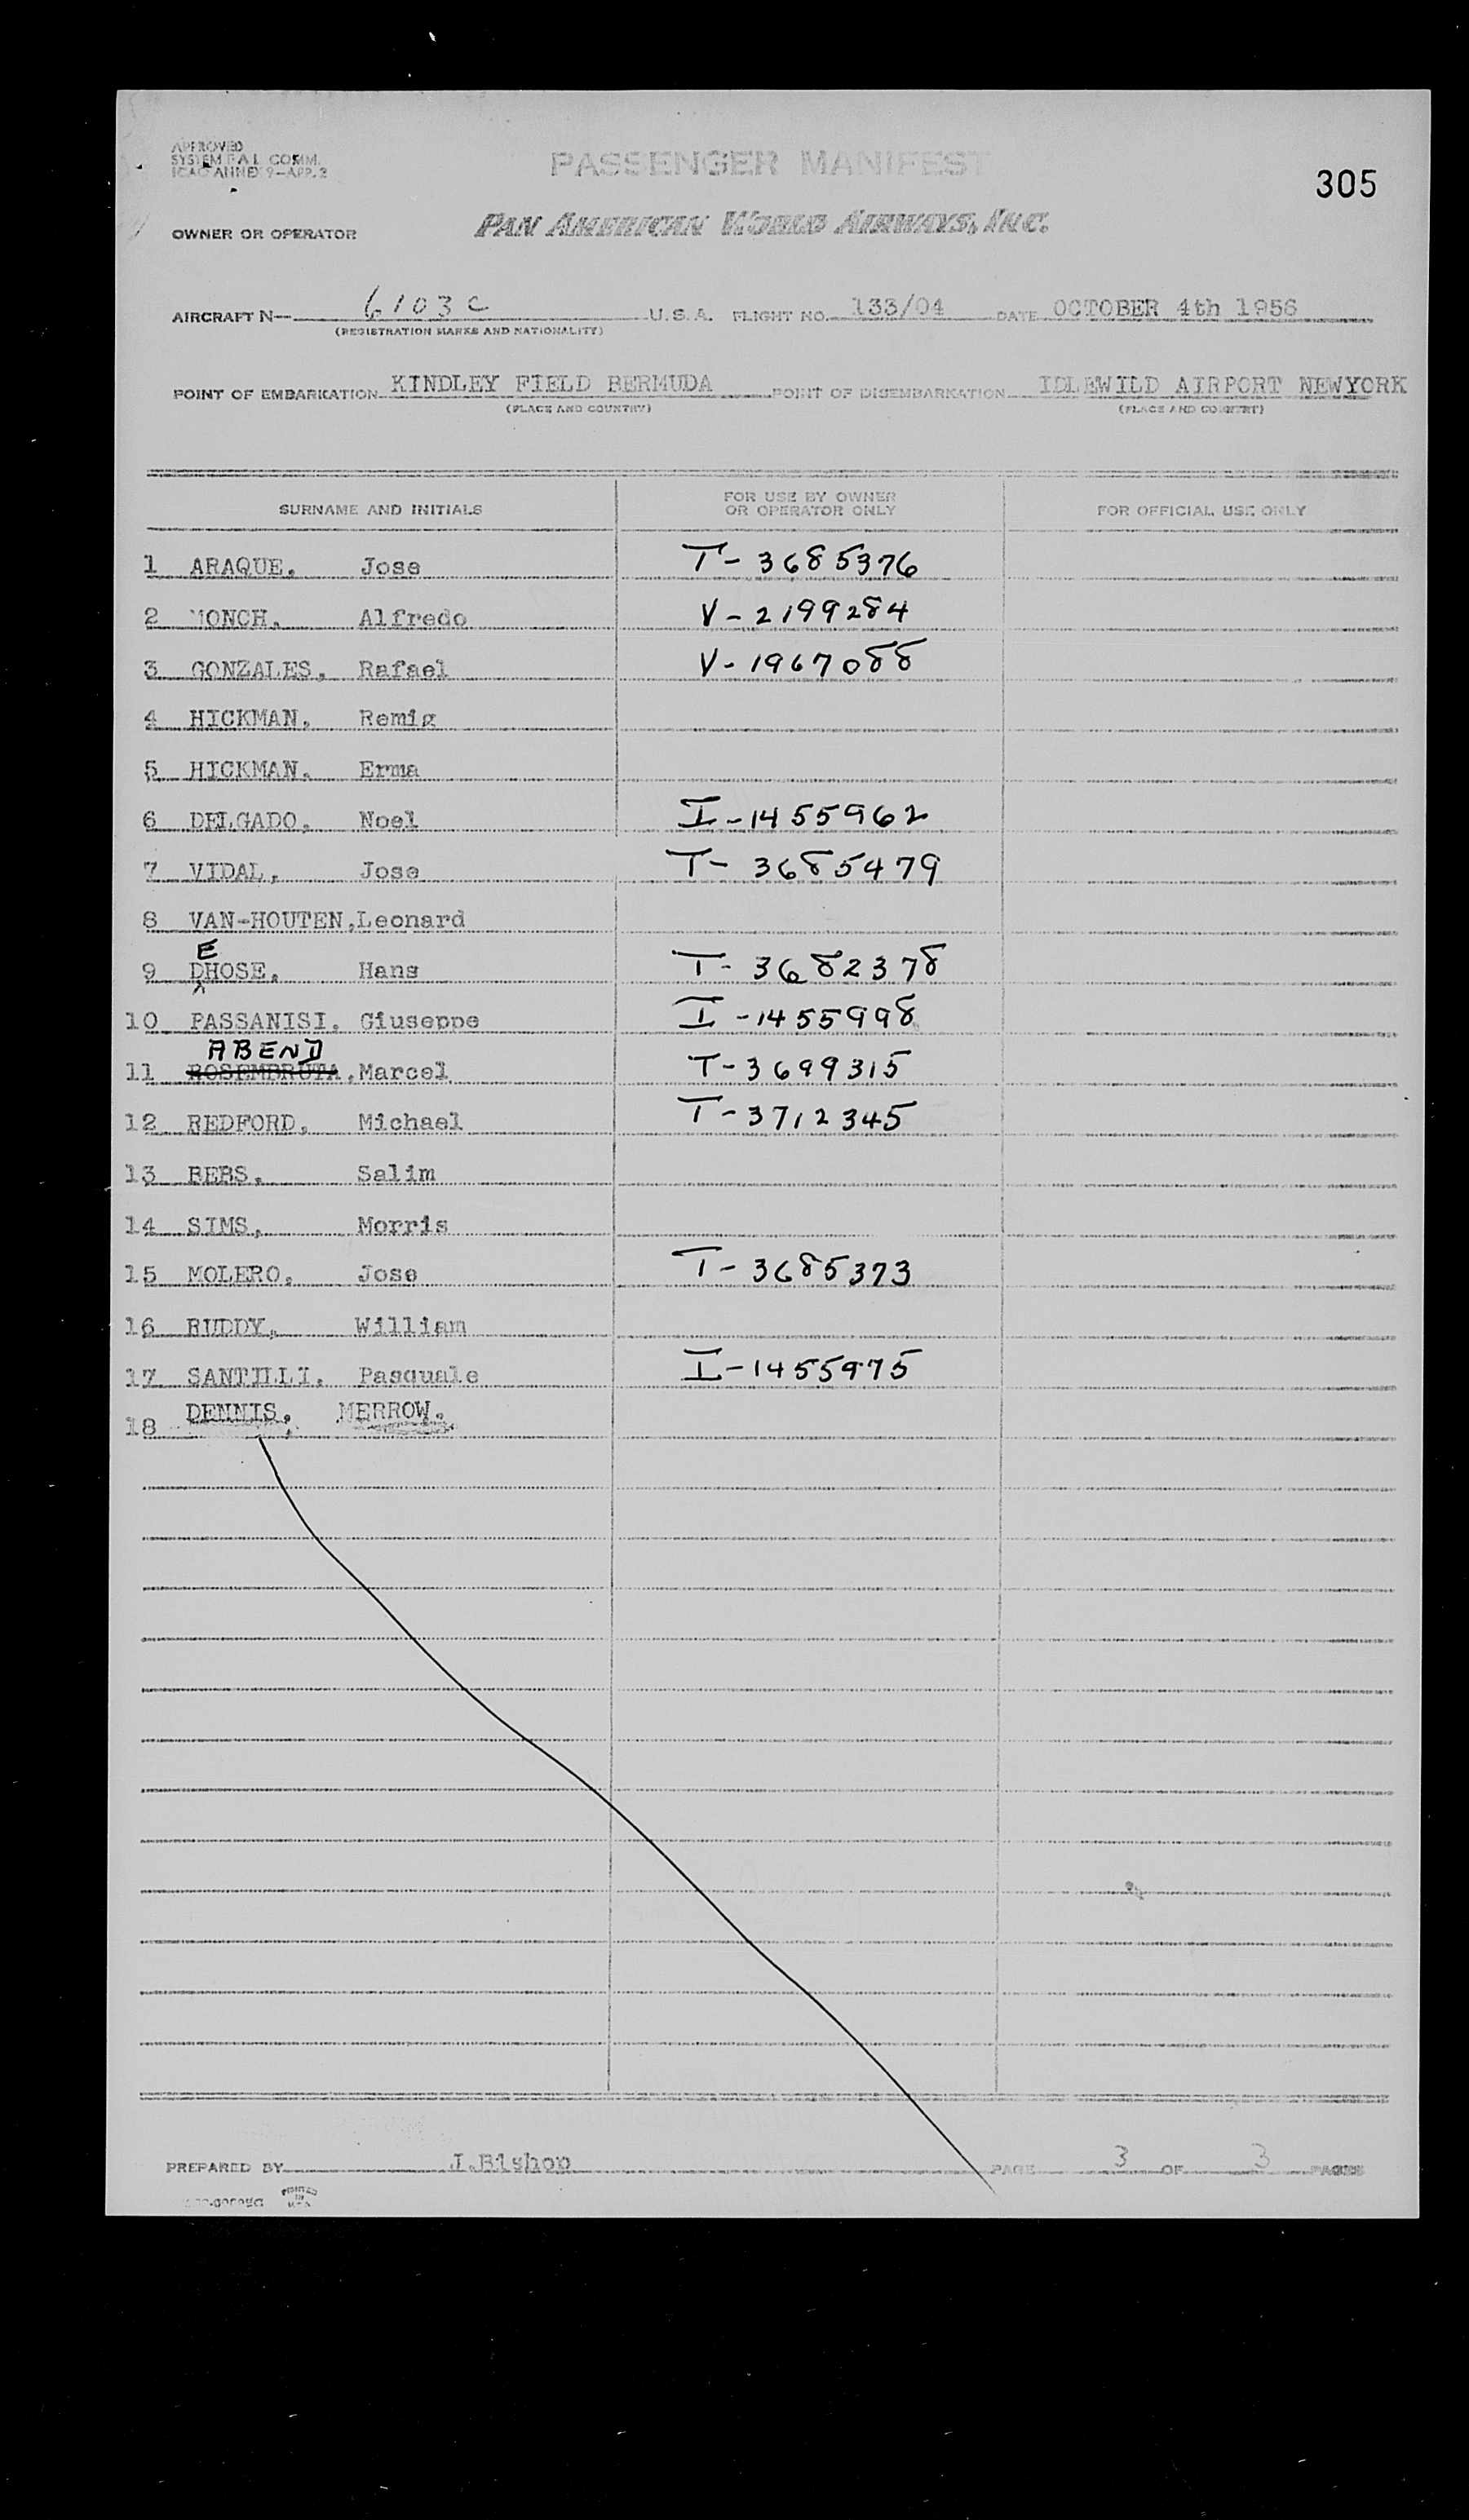 APPROVED
SYSTEM F A L COMM.
ICAO ANNEX 9—APP. 2
PASSENGER MANIFEST
305
OWNER OR OPERATOR
PAN AMERICAN WORLD AIRWAYS, INC.
AIRCRAFT N— 6103C U. S. A. FLIGHT NO. 133/04 DATE OCTOBER 4th 1956
(REGISTRATION MARKS AND NATIONALITY)
POINT OF EMBARKATION KINDLEY FIELD BERMUDA POINT OF DISEMBARKATION IDLEWILD AIRPORT NEWYORK
(PLACE AND COUNTRY) (PLACE AND COUNTRY)
SURNAME AND INITIALS FOR USE BY OWNER OR OPERATOR ONLY FOR OFFICIAL USE ONLY
1 ARAQUE, Jose T-3685376
2 MONCH, Alfredo V-2199284
3 GONZALES, Rafael V-1967088
4 HICKMAN, Remig
5 HICKMAN, Erma
6 DELGADO, Noel I-1455962
7 VIDAL, Jose T-3685479
8 VAN-HOUTEN, Leonard
E
9 DHOSE, Hans T-3682378
10 PASSANISI, Giuseppe I-1455998
ABEND
11 ROSEMBRUTA, Marcel T-3699315
12 REDFORD, Michael T-3712345
13 BEBS, Salim
14 SIMS, Morris
15 MOLERO, Jose T-3685373
16 RUDDY, William
17 SANTILLI, Pasquale I-1455975
18 DENNIS, MERROW.
PREPARED BY J.Bishop PAGE 3 OF 3 PAGES
PRINTED IN U.S.A.